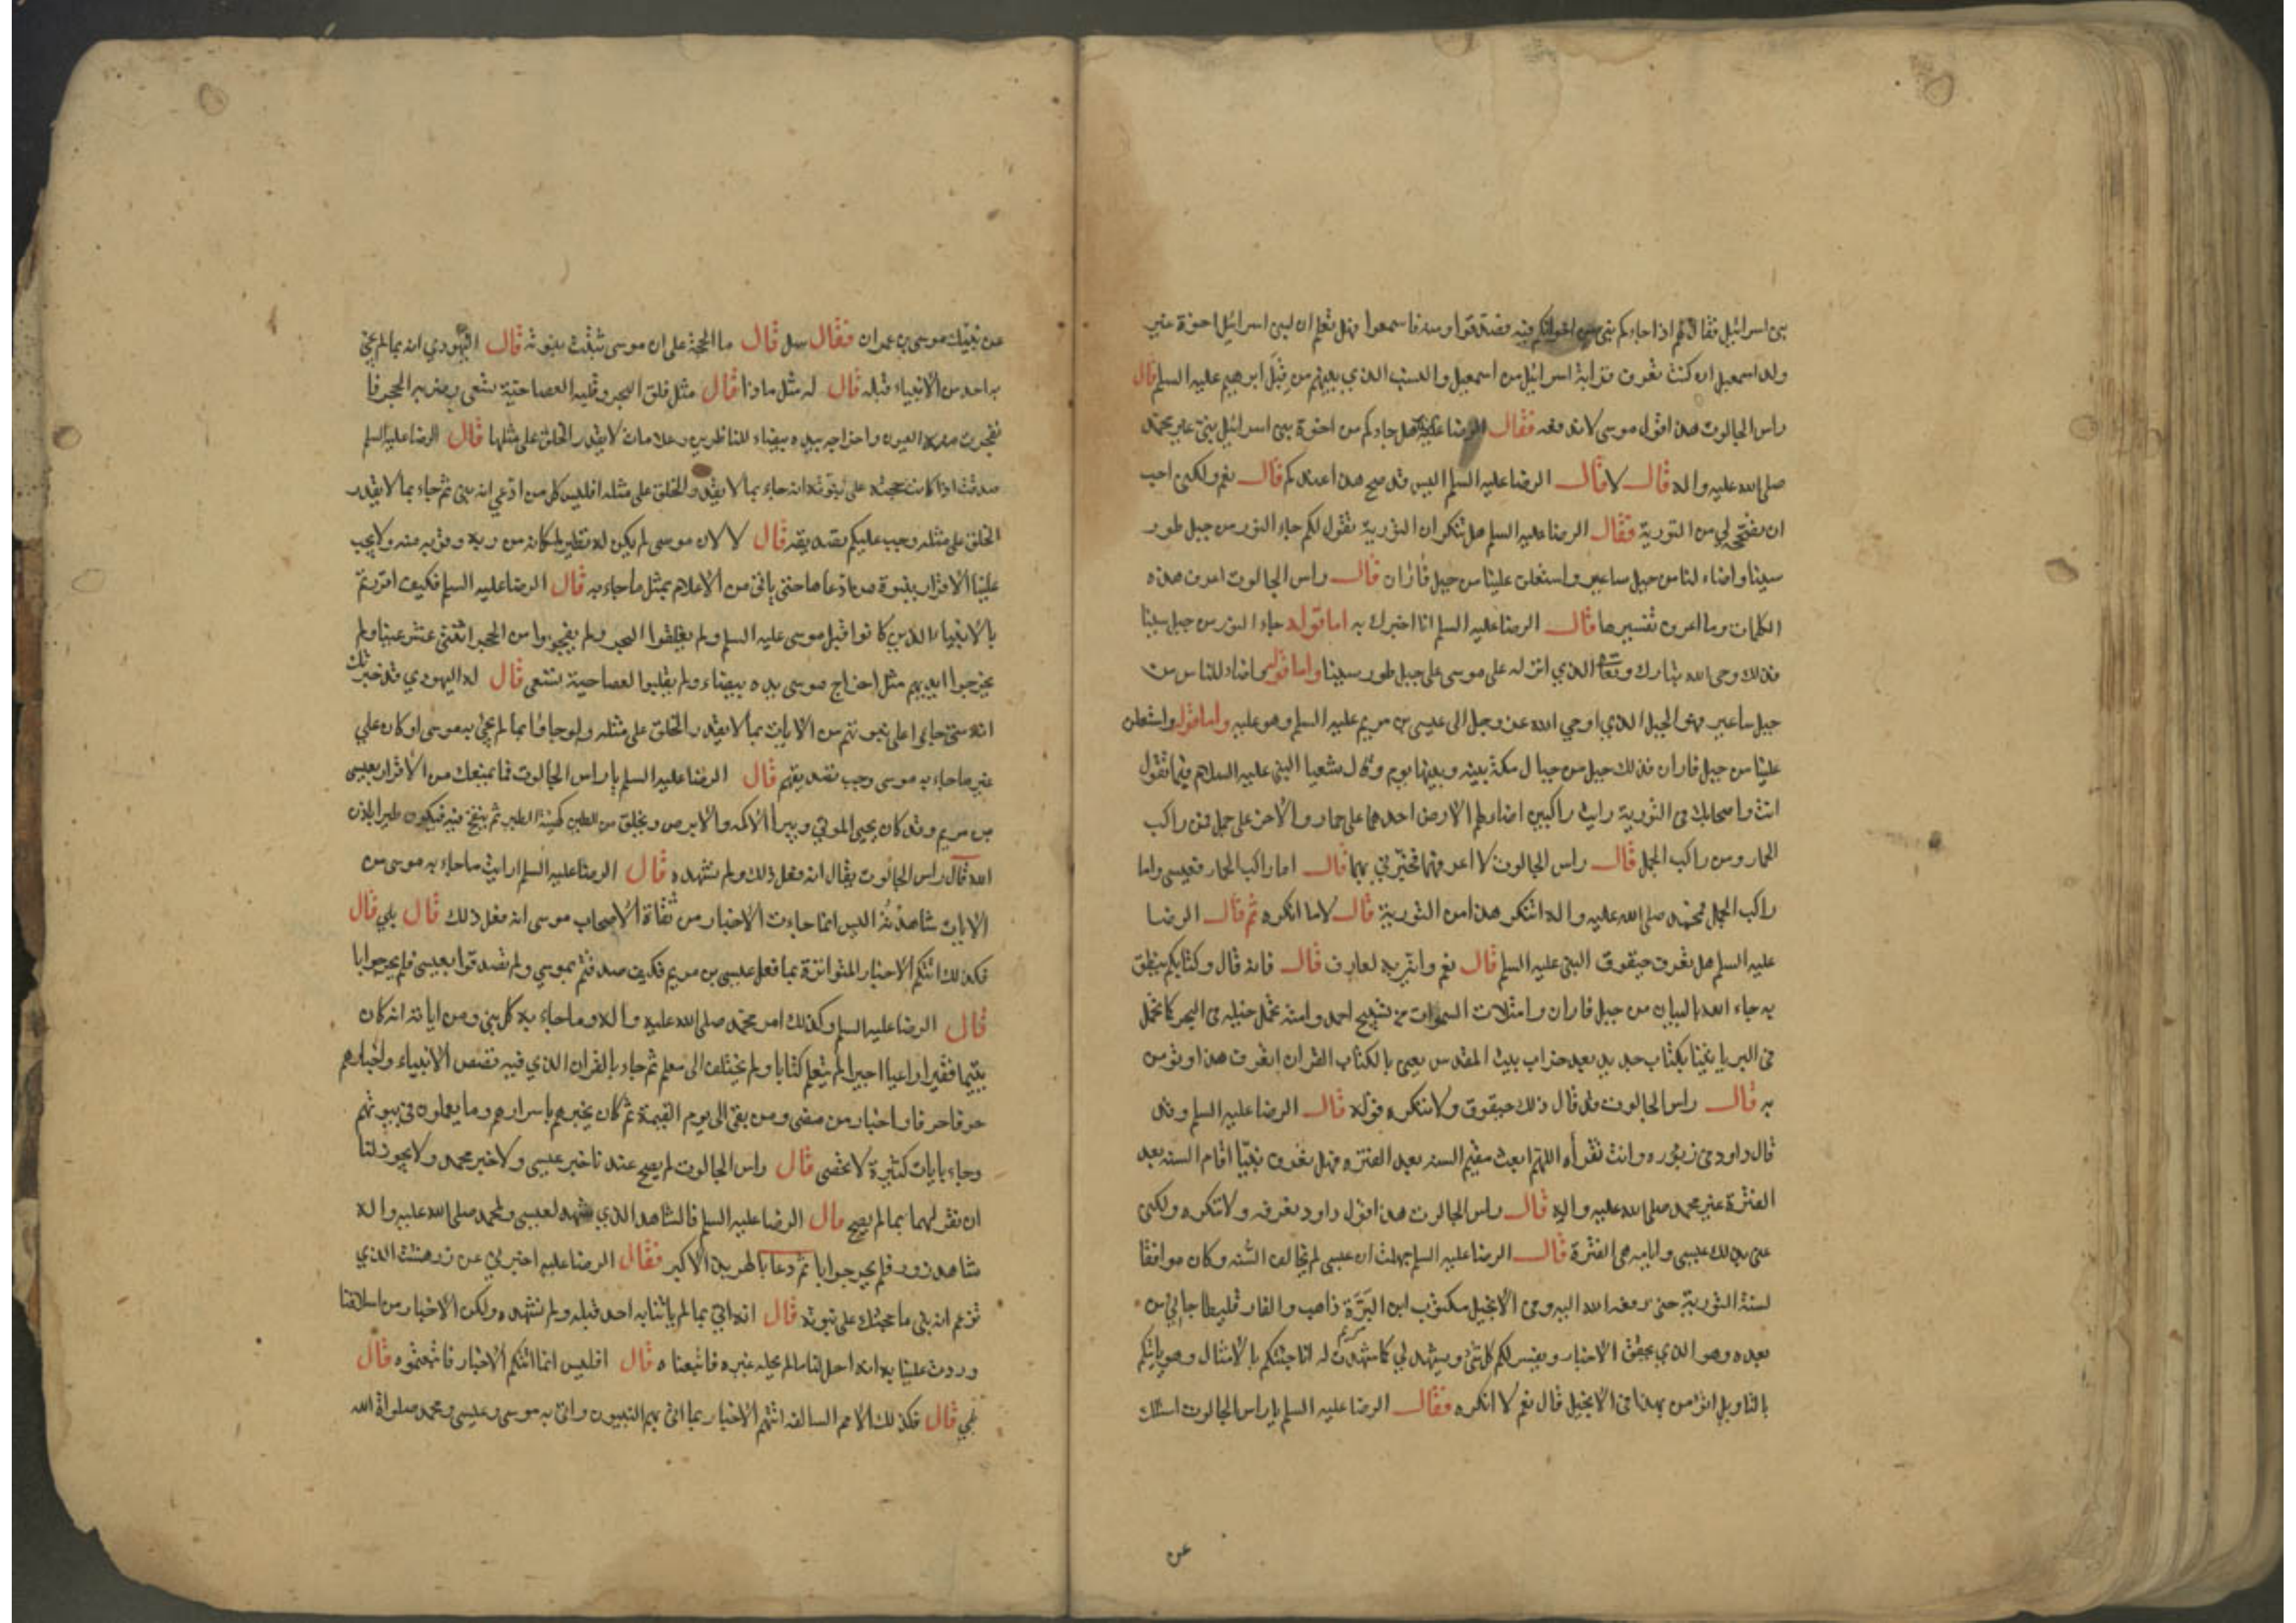 بني اسرائيل فقال لهم اذا جاءكم نبي من اخوانكم فبه فصدقوا ومنه فاسمعوا فهل تعلم ان لبني اسرائيل اخوة غير
ولد اسمعيل ان كنت تعرف قرابة اسرائيل من اسمعيل والنسب الذي بينهم من قبل ابرهيم عليه السلم قال
راس الجالوت هذا قول موسى لا ندفعه فقال الرضا عليه هل جاءكم من اخوة بني اسرائيل نبي غير محمد
صلى الله عليه واله قال لا قال الرضا عليه السلم اليس قد صح هذا عندكم قال نعم ولكني احب
ان تصححه لي من التورية فقال الرضا عليه السلم هل تنكر ان التورية تقول لكم جاء النور من جبل طور
سينا واضاء لنا من جبل ساعير واستعلن علينا من جبل فاران قال راس الجالوت اعرف هذه
الكلمات وما اعرف تفسيرها قال الرضا عليه السلم انا اخبرك به اما قوله جاء النور من جبل سينا
فذلك وحي الله تبارك وتعالى الذي انزله على موسى على جبل طور سينا واما قوله واضاء للناس من
جبل ساعير فهو الجبل الذي اوحي الله عز وجل الى عيسى بن مريم عليه السلم وهو عليه واما قوله واستعلن
علينا من جبل فاران فذلك جبل من جبال مكة بينه وبينها يوم وقال شعيا النبي عليه السلام فيما تقول
انت واصحابك في التورية رايت راكبين اضاء لهم الارض احدهما على حمار والاخر على جمل فمن راكب
الحمار ومن راكب الجمل قال راس الجالوت لا اعرفهما فخبرني بهما قال اما راكب الحمار فعيسى واما
راكب الجمل فمحمد صلى الله عليه واله اتنكر هذا من التورية قال لا ما انكره ثم قال الرضا
عليه السلم هل تعرف حيقوق النبي عليه السلم قال نعم واني به لعارف قال فانه قال وكتابكم ينطق
به جاء الله بالبيان من جبل فاران وامتلات السموات من تسبيح احمد وامته تحمل خيله في البحر كما تحمل
في البر ياتينا بكتاب جديد بعد خراب بيت المقدس يعني بالكتاب القران اتعرف هذا وتؤمن
به قال راس الجالوت قد قال ذلك حيقوق ولا ننكره قوله قال الرضا عليه السلم وقد
قال داود في زبوره وانت تقرأه اللهم ابعث مقيم السنه بعد الفتره فهل تعرف نبيا اقام السنه بعد
الفترة غير محمد صلى الله عليه واله قال راس الجالوت هذا قول داود نعرفه ولا ننكره ولكني
عني بذلك عيسى وايامه هي الفترة قال الرضا عليه السلم جهلت ان عيسى لم يخالف السنه وكان موافقا
لسنة التورية حتى رفعه الله اليه وفي الانجيل مكتوب ابن البرة ذاهب والفارقليطا جائي من
بعده وهو الذي يخفف الاخبار ويفسر لكم كل شئ ويشهد لي كما شهدت له انا جئتكم بالامثال وهو ياتيكم
بالتاويل اتؤمن بهذا في الانجيل قال نعم لا انكره فقال الرضا عليه السلم يا راس الجالوت اسئلك
عن
عن نبيك موسى بن عمران فقال سل قال ما الحجة على ان موسى ثبتت نبوته قال اليهودي انه بما لم يجئ
به احد من الانبياء قبله قال له مثل ماذا قال مثل فلق البحر وقلبه العصا حية تسعى وضربه الحجر فا
نفجرت منه العيون واخراجه يده بيضاء للناظرين وعلامات لا يقدر الخلق على مثلها قال الرضا عليه السلم
صدقت اذا كانت حجته على نبوته انه جاء بما لا يقدر الخلق على مثله افليس كل من ادعي انه نبي ثم جاء بما لا يقدر
الخلق على مثله وجب عليكم تصديقه قال لا لان موسى لم يكن له نظير لمكانه من ربه وقربه منه ولا يجب
علينا الاقرار بنبوة من ادعاها حتى ياتي من الاعلام بمثل ما جاء به قال الرضا عليه السلم فكيف اقررتم
بالانبياء الذين كانوا قبل موسى عليه السلم ولم يفلقوا البحر ولم يفجروا من الحجر اثنتى عشر عينا ولم
يخرجوا ايديهم مثل اخراج موسى يده بيضاء ولم يقلبوا العصا حية تسعى قال له اليهودي قد خبرتك
انه متى جاءوا على نبوتهم من الايات بما لا يقدر الخلق على مثله ولو جاؤا بما لم يجئ به موسى او كان علي
غير ما جاء به موسى وجب تصديقهم قال الرضا عليه السلم يا راس الجالوت فما يمنعك من الاقرار بعيسى
بن مريم وقد كان يحيي الموتي ويبرأ الاكمه والابرص ويخلق من الطين كهيئة الطير ثم ينفخ فيه فيكون طيرا باذن
الله قال راس الجالوت يقال انه فعل ذلك ولم نشهده قال الرضا عليه السلم ارايت ما جاء به موسى من
الايات شاهدته اليس انما جاءت الاخبار من ثقاة الاصحاب موسى انه فعل ذلك قال بلي قال
فكذلك اتتكم الاخبار المتواترة بما فعل عيسى بن مريم فكيف صدقتم بموسي ولم تصدقوا بعيسى فلم يحر جوابا
قال الرضا عليه السلم وكذلك امر محمد صلى الله عليه واله وما جاء به كل نبي ومن اياته انه كان
يتيما فقيرا راعيا اجيرا لم يتعلم كتابا ولم يختلف الى معلم ثم جاء بالقران الذي فيه قصص الانبياء واخبارهم
حرفا حرفا واخبار من مضى ومن بقي الى يوم القيمة ثم كان يخبرهم باسرارهم وما يعملون في بيوتهم
وجاء بايات كثيرة لا تحصى قال راس الجالوت لم يصح عندنا خبر عيسى ولا خبر محمد ولا يجوز لنا
ان نقر لهما بما لم يصح قال الرضا عليه السلم فالشاهد الذي شهد لعيسى ولمحمد صلى الله عليه واله
شاهد زور فلم يحر جوابا ثم دعا بالهربذ الاكبر فقال الرضا عليه اخبرني عن زرهشت الذي
تزعم انه نبي ما حجتك على نبوته قال انه اتي بما لم ياتنا به احد قبله ولم نشهده ولكن الاخبار من اسلافنا
وردت علينا بانه احل لنا ما لم يحله غيره فاتبعناه قال افليس انما اتتكم الاخبار فاتبعتموه قال
بلي قال فكذلك الامم السالفه اتتهم الاخبار بما اتى بهم النبيون واتى به موسى وعيسى ومحمد صلواة الله